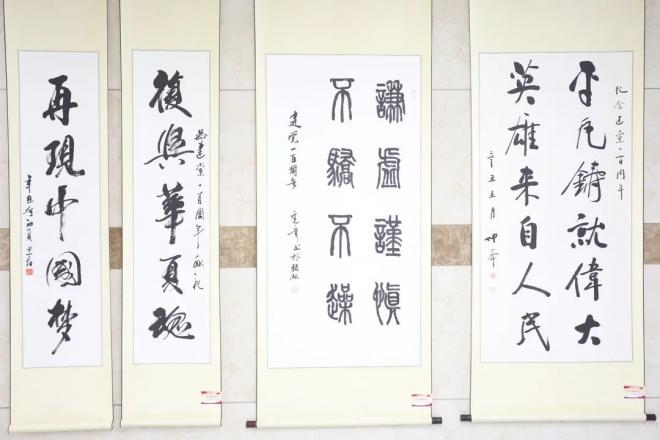 纪念建黨一百周年
平凡鑄就偉大
英雄来自人民
辛丑五月
謙虛謹慎
不驕不躁
建党一百周年
為建党一百周年献礼
復興華夏魂
再現中國梦